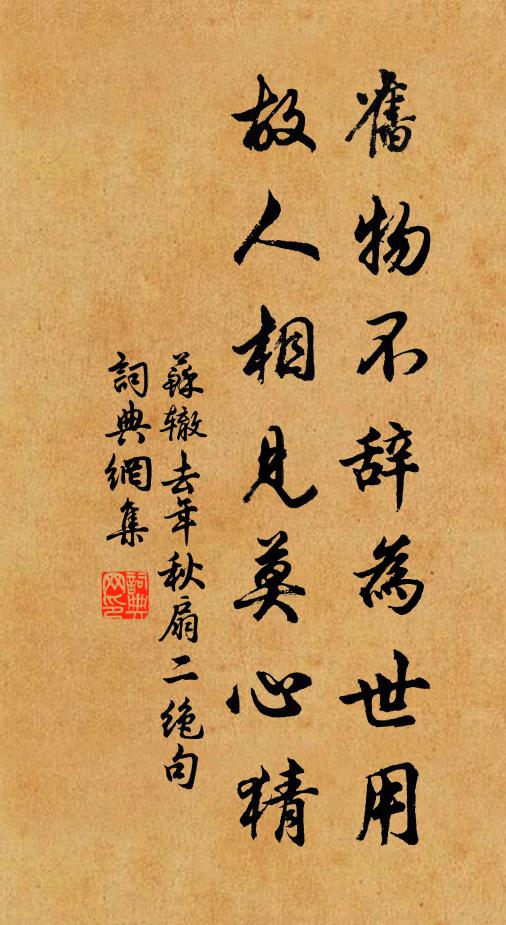 舊物不辞為世用
故人相見莫心猜
蘇辙去年秋扇二絶句
詞典網集
詞典网印